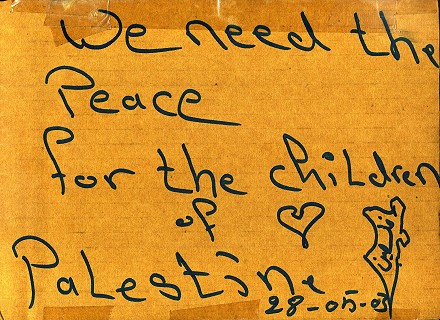 We need the
Peace
for the children
of
Palestine
28-05-03